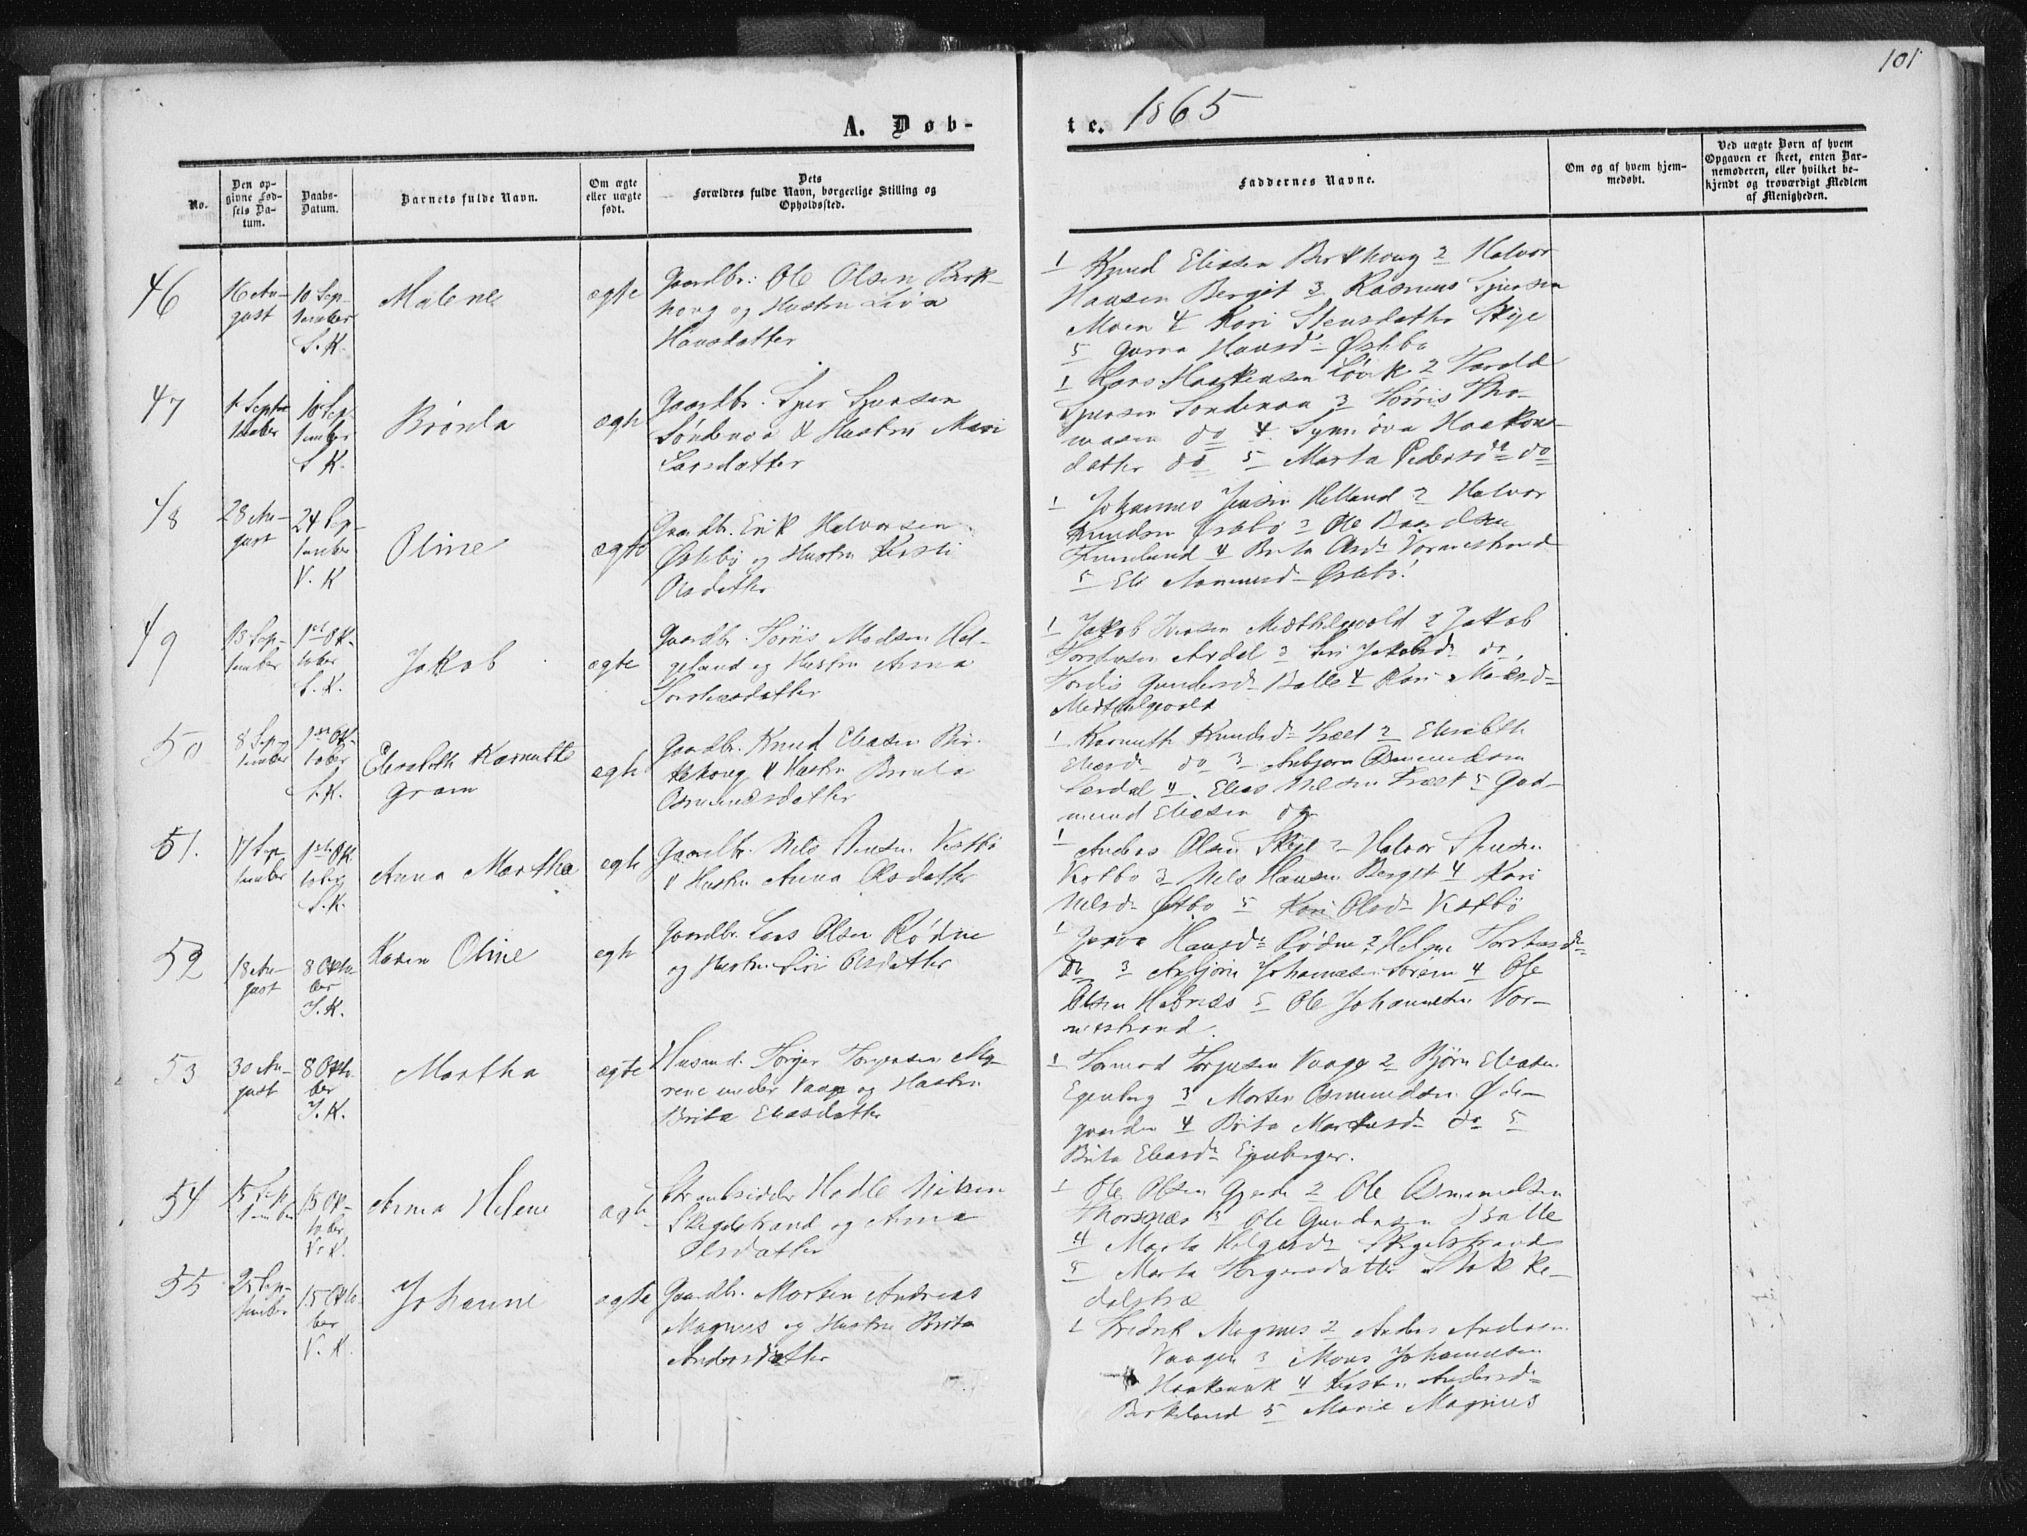 101
A. Døb-
te. 1865
No.
Den op-
givne Fød-
sels Da-
tum.
Daabs-
Datum.
Barnets fulde Navn.
Om ægte
eller uægte
født.
Dets
Forældres fulde Navn, borgerlige Stilling og
Opholdssted.
Faddernes Navne.
Om og af hvem hjem-
medøbt.
Ved uægte Børn af hvem
Opgaven er skeet, enten Bar-
nemoderen, eller hvilket be-
kjendt og troværdigt Medlem
af Menigheden.
46
16 Au-
gust
10 Sep-
tember
S. K.
Malene
ægte
Gaardbr: Ole Olsen Birk-
houg og Hustru
Hansdatter
1 Knud Eliasen Birkhoug 2 Halvor
Hansen Berget 3 Rasmus Sjursen
Moen 4 Kari Stensdatter Skije
5 Hansd- Østebø
47
Septem
tember
10 Sep-
tember
S. K.
ægte
Gaardbr. Sjur Sjursen
Søndenaa & Hustru Mari
Larsdatter
1 Lars Haakensen Løvik 2 Harald
Sjursen Søndenaa 3 Tørris Tho-
masen do 4 Haakons-
datter do 5 Marta Pedersd do
48
28 Au-
gust
24 Sep-
tember
V. K
Oline
ægte
Gaardbr. Erik Halvorsen
Østebø og Hustru Kirsti
Olsdatter
1 Johannes Jensen Helland 2 Halvor
Knudsen Østebø 3 Ole Baardsen
4 Brita Olsd Vormestrand
5 Eli Østebø
49
13 Sep-
tember
1st Ok-
tober
S. K.
Jakob
ægte
Gaardbr. Tørris Madsen Hel-
geland og Hustru Anna
Torstensdatter
1 Jakob Iversen 2 Jakob
Torstensen Ardal 3 Siri Jakobsd do
Tordis Gundersd Balle 4 Kari Madsd
50
8 Sep-
tember
1st Ok-
tober
S. K.
Elisabeth
Gram
ægte
Gaardbr. Knud Eliasen Bir-
kehoug & Hustru
Osmundsdatter
1 Knudsd Træet 2 Elisabeth
Eliasd do 3 Asbjørn Osmundsen
4 Elias Nilsen Træet 5 Gud-
mund Eliasen do
51.
17 Sep-
tember
1st Ok-
tober
S. K.
Anna Martha
ægte
Gaardbr. Nils
& Hustru Anna Olsdatter
1 Anders Olsen Skije 2 Halvor
3 Nils Hansen Berget 4 Kari
Nilsd Østbø 5 Kari Olsd
52
18 Au-
gust
8 Okto
ber
J. K.
Karen Oline
ægte
Gaardbr. Lars Olsen Rødne
og Hustru Siri Olsdatter
1 Hansd Rødne 2 Helga Torstensd
do 3 Asbjørn Johannesen 4 Ole
Olsen 5 Ole Johannesen Vor-
mestrand.
53
30 Au-
gust
8 Okto
ber
J. K.
Martha
ægte
Husmd. Torger Torgersen
under Vaage og Hustru
Brita Eliasdatter
1 Tormod Torgersen Vaage 2 Bjørn Eliasen
Egenberg 3 Morten Osmundsen Øde-
gaarden 4 Brita Martasd do 5
Brita Eliasd
54
15 Sep
tember
15 Ok-
tober
V. K.
Anna Helene
ægte
Strandsidder Hadle Nilsen
Skigelstrand og Anna
Olsdatter
1 Ole Olsen Gjerde 2 Ole Osmundsen
Thorsnæs 3 Ole Gundersen Balle
4 Marta Helgesd Skigelstrand
5 Marta Torgersdatter Stokke-
dalstræ
55
25 Sep-
tember
15 Okto-
ber
V. K.
Johanne
ægte
Gaardbr. Morten Andreas
Magnus og Hustru Brita
Andersdatter
1 Fredrik Magnus 2 Anders Andersen
Vaagen 3 Mons Johannesen
4 Andersd
Birkeland 5 Marie Magnus